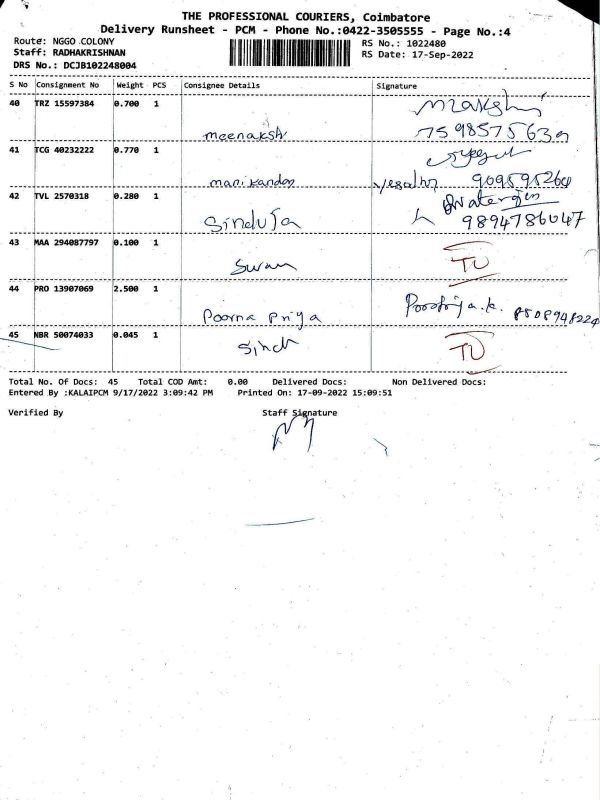 THE PROFESSIONAL COURIERS, Coimbatore
Delivery Runsheet - PCM - Phone No.:0422-3505555 - Page No.:4
Route: NGGO COLONY
RS No.: 1022480
Staff: RADHAKRISHNAN
RS Date: 17-Sep-2022
DRS No.: DCJB102248004
S No Consignment No Weight PCS Consignee Details Signature
40 TRZ 15597384 0.700 1
meenaksh 7598575639
41 TCG 40232222 0.770 1
manikandan 909595260
42 TVL 2570318 0.280 1
Sinduja 9894786047
43 MAA 294087797 0.100 1
TU
44 PRO 13907069 2.500 1
Poorna Priya 8508948224
45 NBR 50074033 0.045 1
TU
Total No. Of Docs: 45 Total COD Amt: 0.00 Delivered Docs: Non Delivered Docs:
Entered By :KALAIPCM 9/17/2022 3:09:42 PM Printed On: 17-09-2022 15:09:51
Verified By Staff Signature